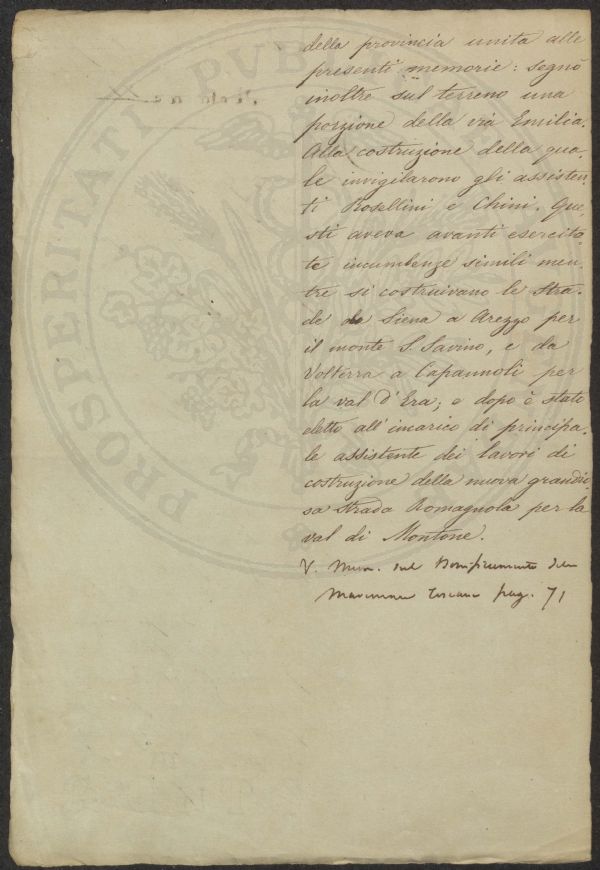 PROSPERITATI PUBL
della provincia unita alle
presenti memorie: segnò
inoltre sul terreno una
porzione della via Emilia.
Alla costruzione della qua-
le invigilarono gli assisten-
ti Rosellini e Chini. Que-
sti aveva avanti esercita-
te incumbenze simili men-
tre si costruivano le Stra-
de da Siena a Arezzo per
il monte S. Savino, e da
Volterra a Capannoli per
la val d'Era; e dopo è stato
eletto all'incarico di principa-
le assistente dei lavori di
costruzione della nuova grandio-
sa strada Romagnola per la
val di Montone.
V. Mem. sul Bonificamento delle
Maremme Toscane pag. 71